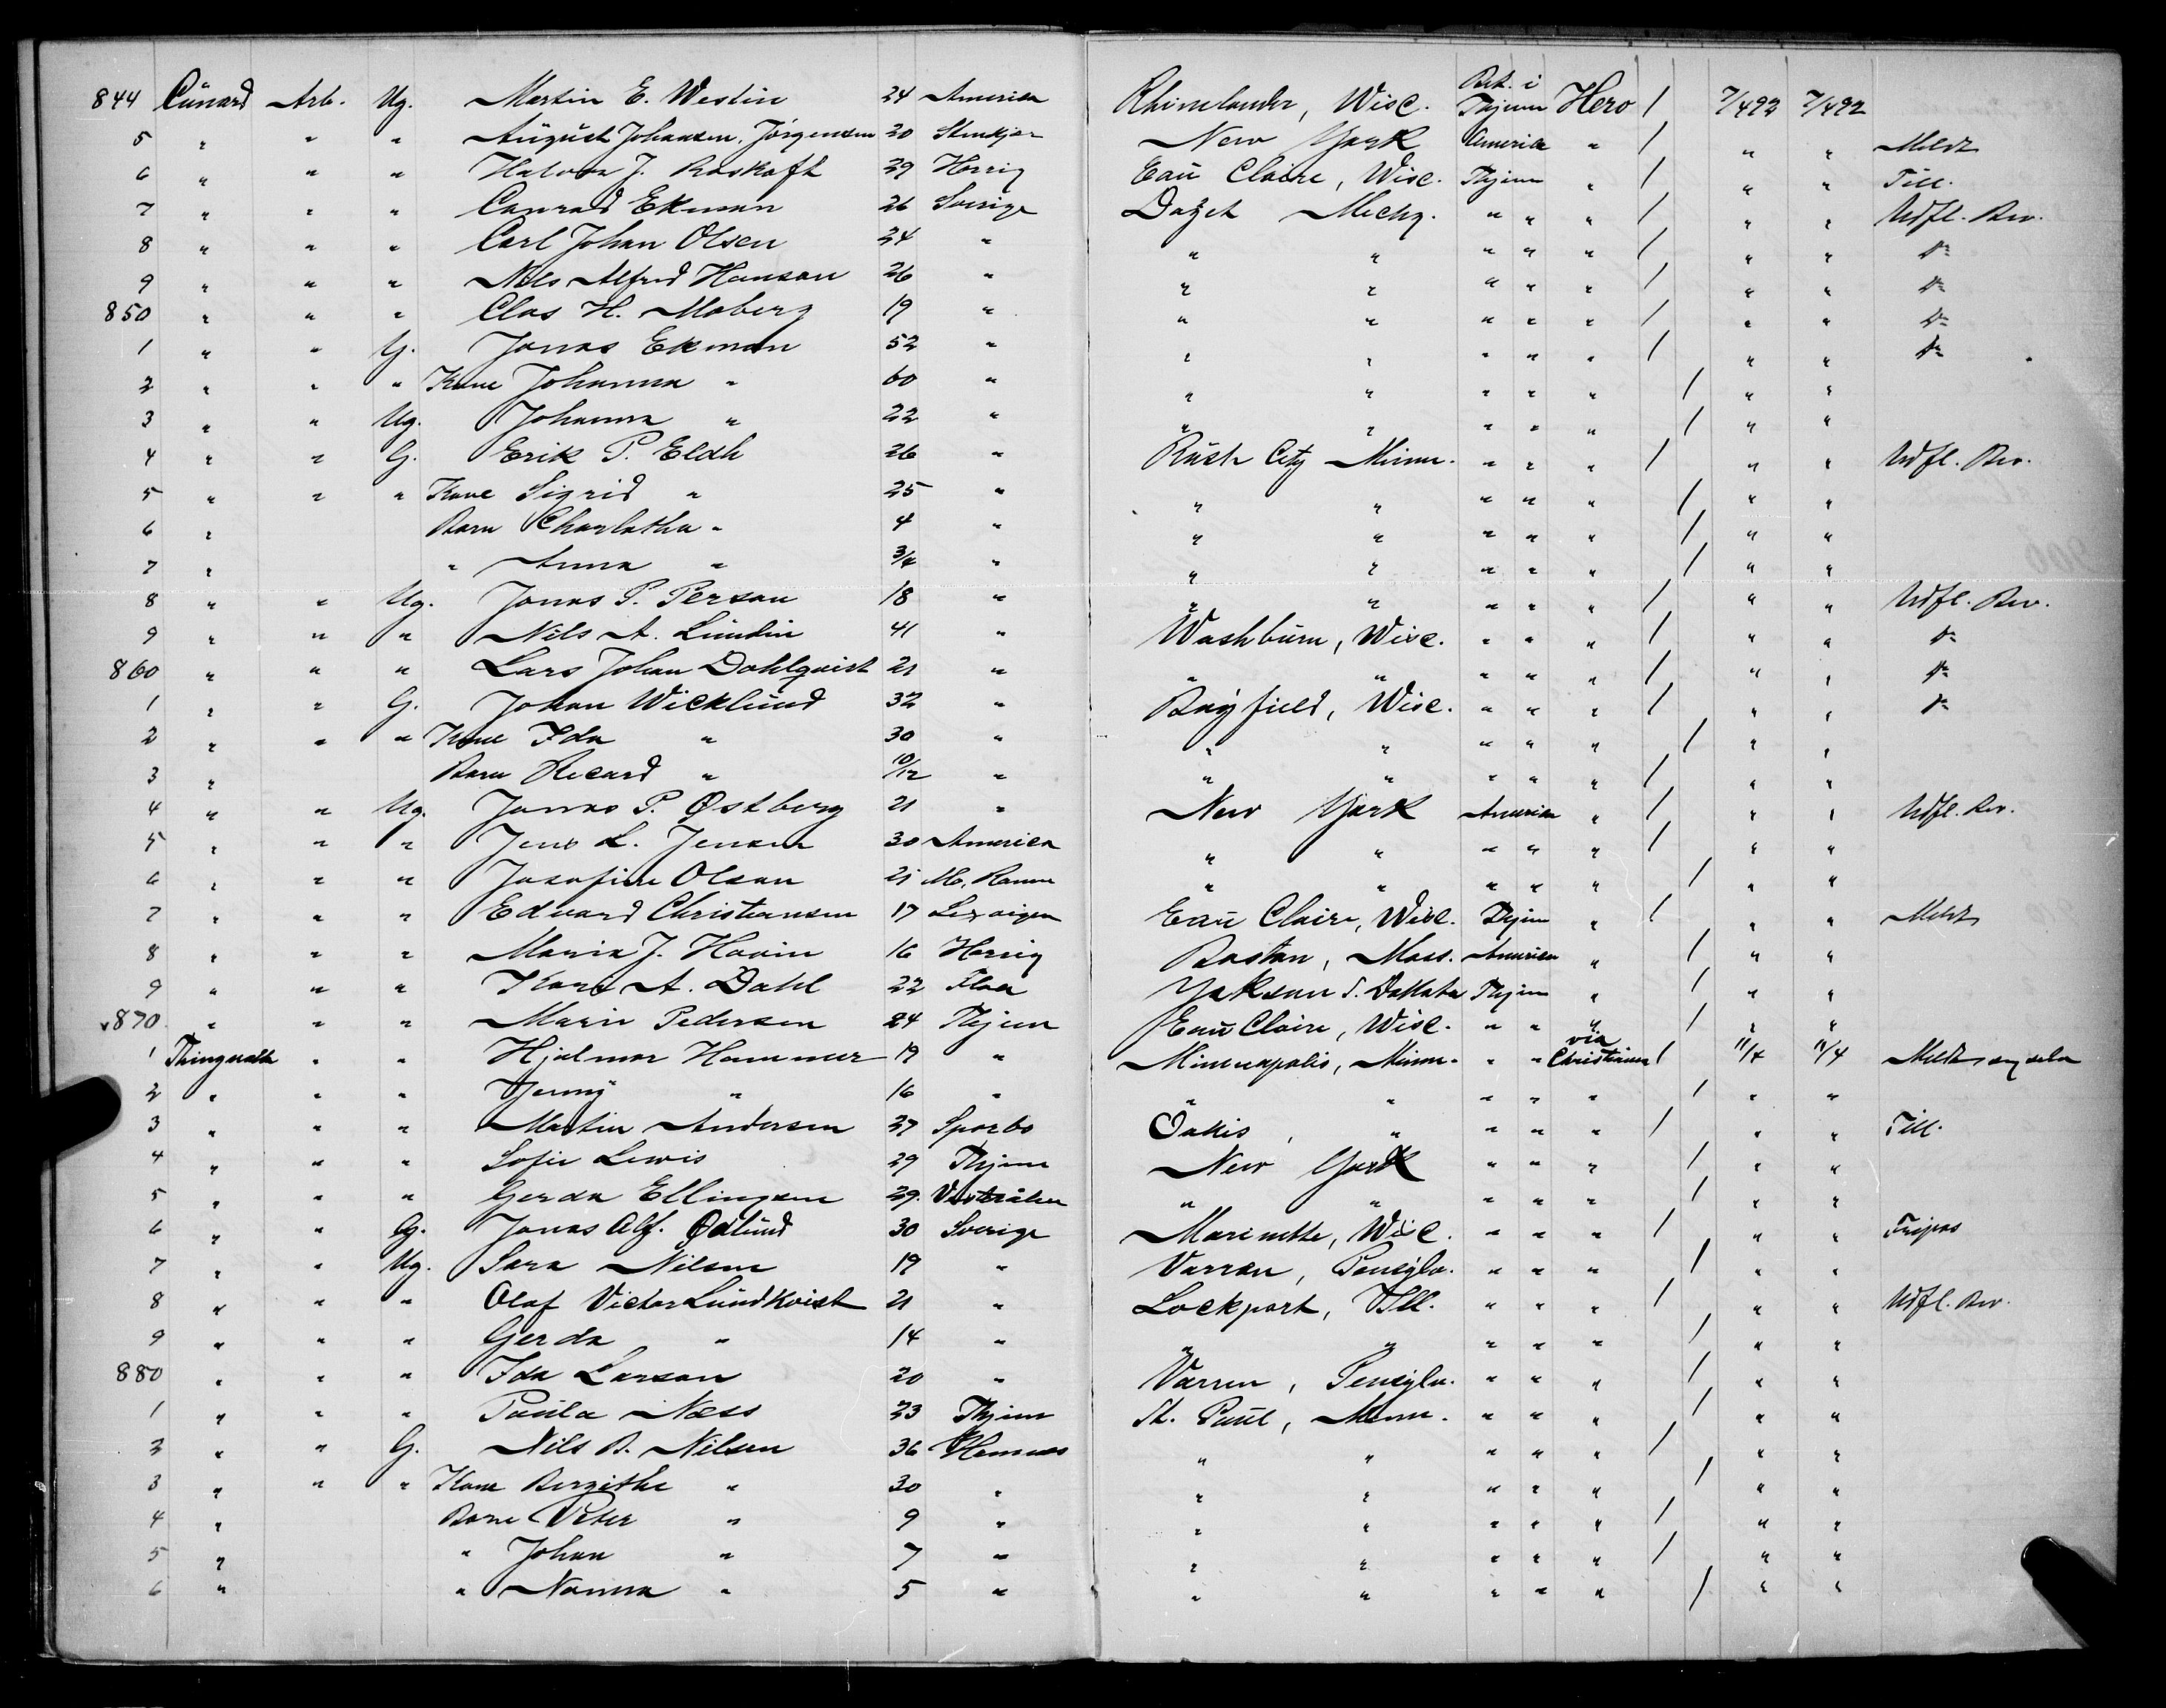 844 Cunard Arb. Ug. Martin E. Westin 24 America Rhinelander, Wisc. Bet. i Thjem Hero / 7/492 7/492
5 " " " August Johansen, Jörgensen 20 Stenkjær New York America " / " " Meldt
6 " " " Halvor J. Roskaft 29 Horrig Eau Claire, Wisc. Thjem " / " " Till.
7 " " " Conrad Ekman 26 Sverige Dazet Mechg. " " " / " " Udfl. Bev.
8 " " " Carl Johan Olsen 24 " " " " " " / " " do
9 " " " Nils Alfred Hanson 26 " " " " " " / " " do
850 " " " Clas H. Moberg 19 " " " " " " / " " do
1 " " G. Jonas Ekman 52 " " " " " " / " " do
2 " " " Kone Johanna " 60 " " " " " " / " "
3 " " Ug. Johanna " 22 " " " " " " / " "
4 " " G. Erik P. Eldh 26 " Rush City Minn. " " " / " " Udfl. Bev.
5 " " " Kone Sigrid " 25 " " " " " " / " "
6 " Barn Charlotha " 4 " " " " " " / " "
7 " " Anna " 3/4 " " " " " " / " "
8 " " Ug. Jonas P. Person 18 " " " " " " / " " Udfl. Bev.
9 " " " Nils A. Lundin 41 " Washburn, Wisc. " " " / " " do
860 " " " Lars Johan Dahlqvist 21 " " " " " " / " " do
1 " " G. Johan Wicklund 32 " Bayfield, Wisc. " " " / " " do
2 " " " Kone Ida " 30 " " " " " " / " "
3 " Barn Recard " 10/12 " " " " " " / " "
4 " " Ug. Jonas P. Østberg 21 " New York America " / " " Udfl. Bev.
5 " " " Jens L. Jensen 30 America " " " " " / " "
6 " " " Josefine Olsen 21 " " " " " / " "
7 " " " Edvard Christiansen 17 Eau Claire, Wisc. Thjem " / " " Meldt
8 " " " Maria J. Havin 16 Horrig Boston, Mass. America " / " "
9 " " " Karl A. Dahl 22 Flaa Yakson S. Dakota Thjem " / " "
870 " " " Marie Pedersen 24 Thjem Eau Claire, Wisc. " " " / " "
1 Thingvalla " " Hjalmar Hammer 19 " Minneapolis, Minn. " " via Christiania / 11/4 11/4 Meldt
2 " " " Jenny " 16 " " " " " " / " "
3 " " " Martin Andersen 27 Sparbo Oakis, " " " " / " " Till.
4 " " " Sofie Lewis 29 Thjem New York " " " / " "
5 " " " Gerda Ellingsen 29. Vesteraalen " " " " " / " "
6 " " G. Jonas Alf. Ødlund 30 Sverige Marinette, Wisc. " " " / " " Fripas
7 " " Ug. Sara Nilsen 19 " Varren, Pensylv. " " " / " "
8 " " " Olaf Victor Lundkvist 21 " Lockport, Ill. " " " / " " Udfl. Bev.
9 " " " Gerda " 14 " " " " " " / " "
880 " " " Ida Larson 20 " Varren, Pensylv. " " " / " "
1 " " " Paula Næss 23 Thjem St. Paul, Minn. " " " / " "
2 " " G. Nils B. Nilsen 36 Hemnes " " " " " / " "
3 " " " Kone Bergithe " 30 " " " " " " / " "
4 " Barn Peter " 9 " " " " " " / " "
5 " " Johan " 7 " " " " " " / " "
6 " " Nanna " 5 " " " " " " / " "